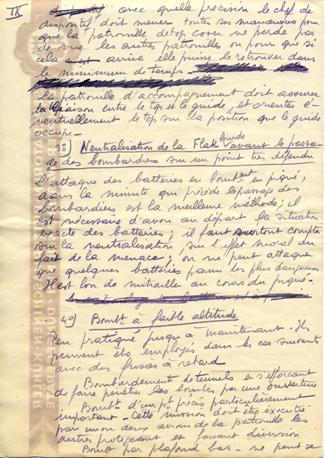 IX avec quelle précision le chef de
dispositif doit mener toutes ses manœuvres pour
que la patrouille de top cover ne perde pas
de vue les autres patrouilles ou pour que si
cela arrive elle puisse le retrouver dans
le minimum de temps
la patrouille d'accompagnement doit assurer
la liaison entre le top et le guide, et oriente é-
ventuellement le top sur la position que le guide
occupe.
3°) Neutralisation de la Flak avant le passa-
ge des bombardiers sur un point très défendu
L'attaque des batteries en bombt en piqué,
dans la minute qui précède le passage des
bombardiers est la meilleure méthode; il
est nécessaire d'avoir au départ la situation
exacte des batteries; il faut surtout compter
sur la neutralisation sur l'effet moral du
fait de la menace; on ne peut attaquer
que quelques batteries parmi les plus dangereuses
Il est bon de mitrailler au cours du piqué.
4°) Bombt à faible altitude
Peu pratiqué jusqu'à maintenant. Ils
peuvent être employés dans les cas suivants
avec des fusées à retard
Bombardement de tunnels en s'efforçant
de faire pénétrer les bombes par une ouverture
Bombt d'un pt précis particulièrement
important - Cette mission doit être exécutée
par un ou deux avions de la patrouille les
autres protégeant et faisant diversion
Bombt par plafond bas - ne peut se